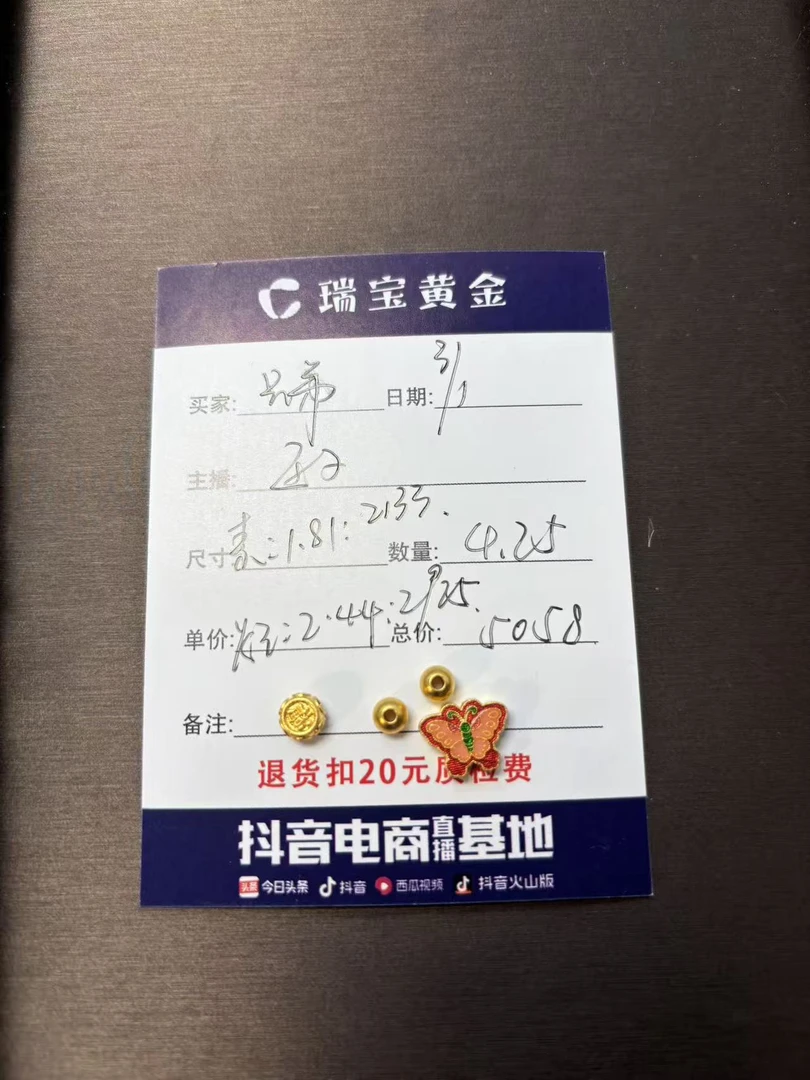 瑞宝黄金
买家: 日期: 3/1
主播:
尺寸 : 1.81: 2133. 数量: 4.25
单价: : 2.44: 2925. 总价: 5058
备注:
退货扣20元质检费
抖音电商直播基地
头条 今日头条 抖音 西瓜视频 抖音火山版